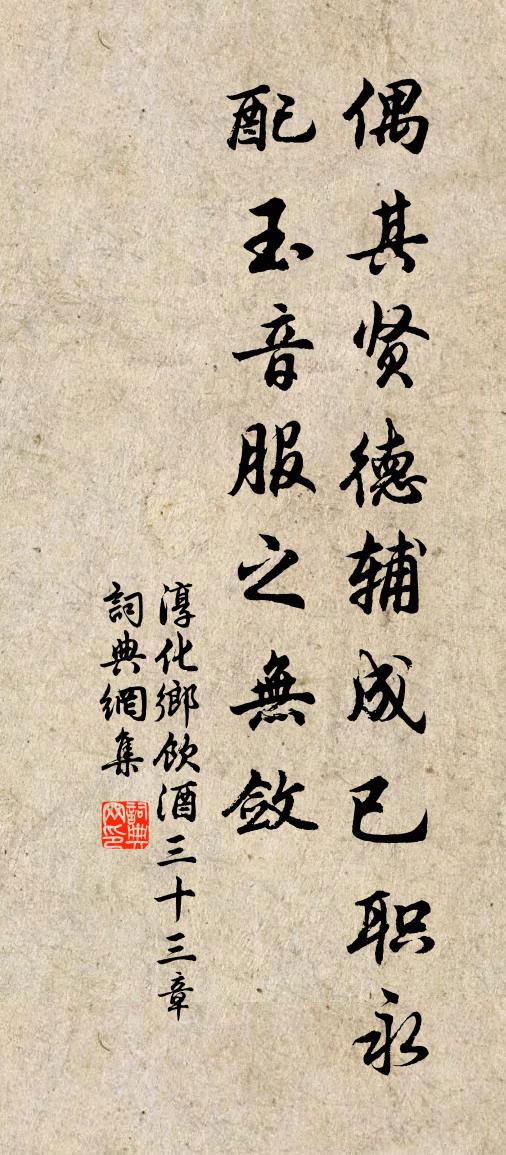 偶其贤德辅成已职永
配玉音服之無斂
淳化鄉飲酒三十三章
詞典網集
詞典网印